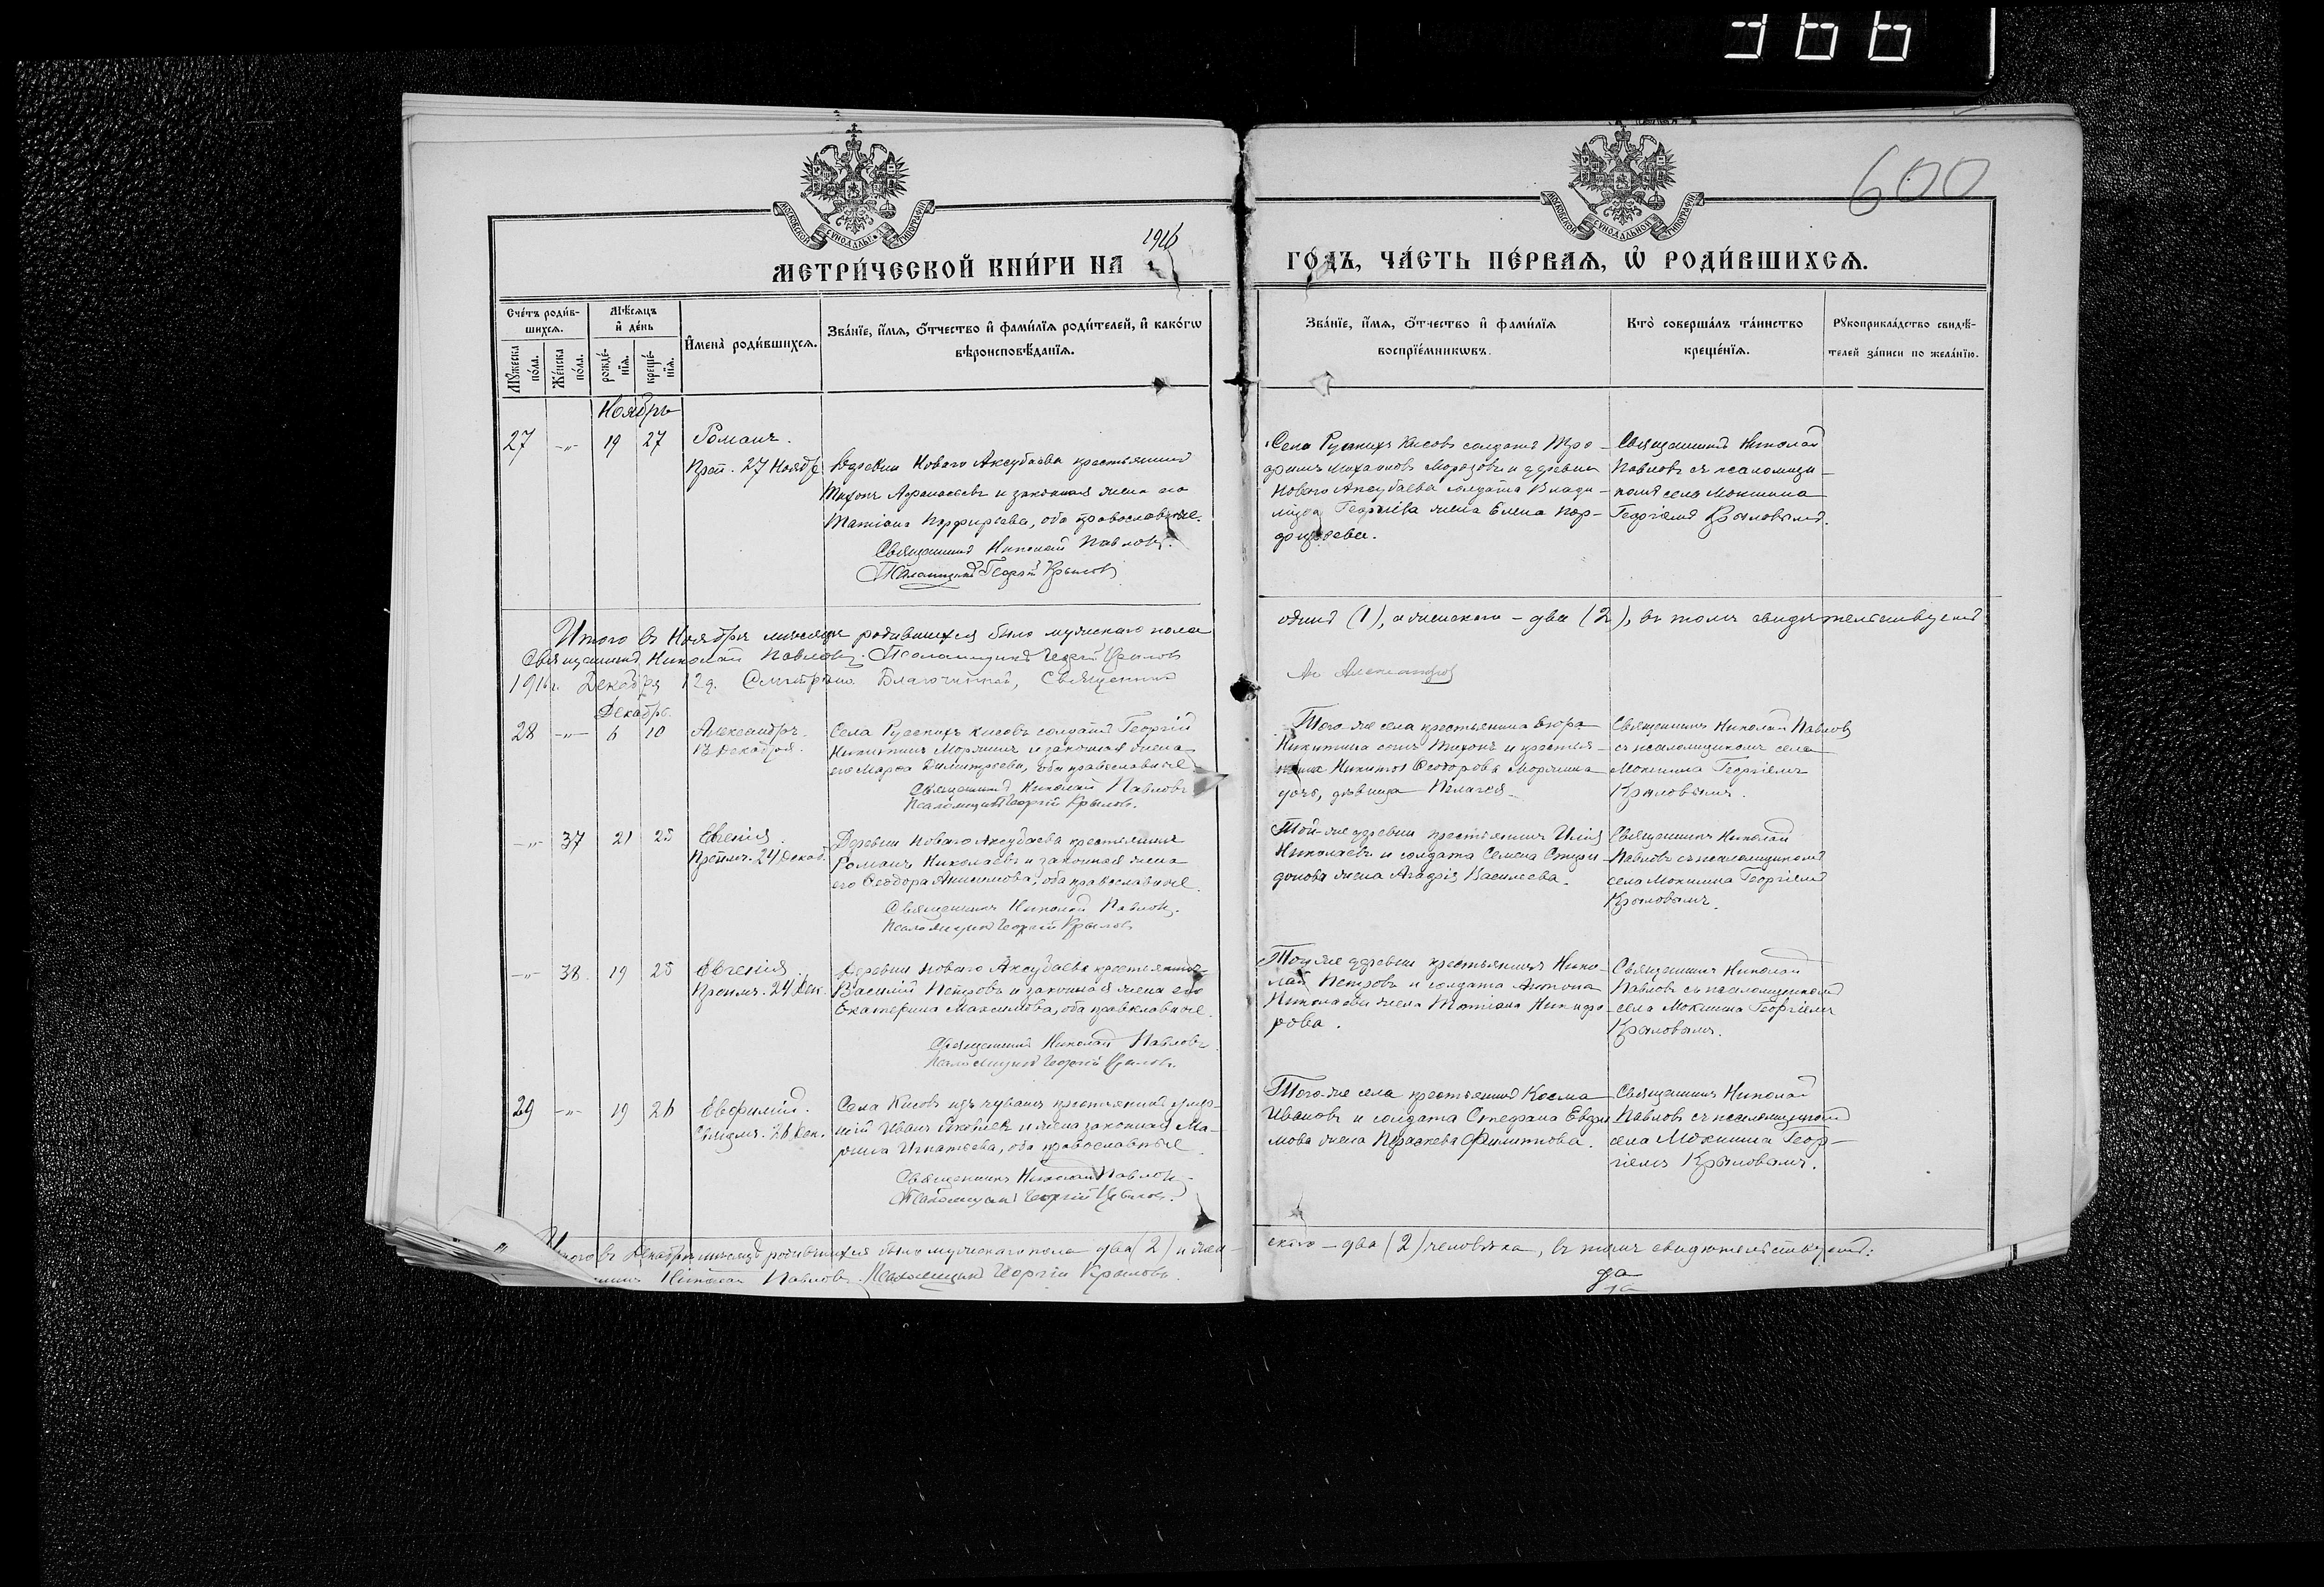 366
600
МОСКОВСКОЙ СѴНОДАЛЬНОЙ ТИПОГРАФІИ
МОСКОВСКОЙ СѴНОДАЛЬНОЙ ТИПОГРАФІИ
1916
МЕТРИ́ЧЕСКОЙ КНИ́ГИ НА
ГО́ДЪ, ЧА́СТЬ ПЕ́РВАЯ, Ѡ҆ РОДИ́ВШИХСЯ.
Сче́тъ роди́в-
шихся.
Мꙋ́жеска по́ла.
Же́нска по́ла.
Мѣ́сяцъ
и҆ де́нь
рожде́-
нїя.
креще́-
нїя.
И҆мена̀ роди́вшихся.
Зва́нїе, и҆́мя, ѻ҆́тчество и҆ фами́лїя роди́телей, и҆ како́гѡ
вѣроисповѣ́данїя.
Зва́нїе, и҆́мя, ѻ҆́тчество и҆ фами́лїя
воспрїе́мникѡвъ.
Кто̀ соверша́лъ та́инство
креще́нїя.
Рꙋкоприкла́дство свидѣ́-
телей за́писи по жела́нїю.
Ноябрь
27 -"- 19 27 Романъ.
Прп. 27 Ноябр.
Деревни Новаго Аксубаева крестьянинъ
Тихонъ Афанасьевъ и законная жена его
Татіана Порфирьева, оба православные.
Священникъ Николай Павловъ.
Псаломщикъ Георгій Крыловъ
Села Русскихъ Кисовъ солдатъ Тро-
фимъ Михайловъ Морозовъ и деревни
Новаго Аксубаева солдата Влади-
міра Георгіева жена Елена Пор-
фирьева.
Священникъ Николай
Павловъ съ псаломщи-
комъ села Мокшина
Георгіемъ Крыловымъ.
Итого въ Ноябрѣ мѣсяцѣ родившихся было мужескаго пола
одинъ (1), а женскаго - два (2), въ томъ свидѣтельствуемъ
Священникъ Николай Павловъ. Псаломщикъ Георгій Крыловъ
1916 г. Декабря 12 д. Смотрѣно Благочинный, Священникъ
Ал Александровъ
Декабрь.
28 -"- 6 10 Александръ.
Декабря.
Села Русскихъ Кисовъ солдатъ Георгій
Никитинъ Моряшинъ и законная жена
его Марѳа Димитріева, оба православные
Священникъ Николай Павловъ
Псаломщикъ Георгій Крыловъ.
Того-же села крестьянина Егора
Никитина сынъ Тихонъ и крестья-
нина Никиты Ѳеодорова Моряшина
дочь, дѣвица Пелагея
Священникъ Николай Павловъ
съ псаломщикомъ села
Мокшина Георгіемъ
Крыловымъ.
-"- 37 21 25 Евгенія.
Препмч. 24 Декаб.
Деревни Новаго Аксубаева крестьянинъ
Романъ Николаевъ и законная жена
его Ѳеодора Анисимова, оба православные.
Священникъ Николай Павловъ.
Псаломщикъ Георгій Крыловъ
Той-же деревни крестьянинъ Илія
Николаевъ и солдата Семена Спири-
донова жена Агафія Васильева.
Священникъ Николай
Павловъ съ псаломщикомъ
села Мокшина Георгіемъ
Крыловымъ.
-"- 38. 19 25 Евгенія.
Препмч. 24 Дек.
Деревни Новаго Аксубаева крестьянинъ
Василій Петровъ и законная жена его
Екатерина Максимова, оба православные.
Священникъ Николай Павловъ
Псаломщикъ Георгій Крыловъ.
Той же деревни крестьянинъ Нико-
лай Петровъ и солдата Антона
Николаева жена Татіана Никифо-
рова.
Священникъ Николай
Павловъ съ псаломщикомъ
села Мокшина Георгіемъ
Крыловымъ.
29 -"- 19 26 Евфимій.
Свящмч. 28 Дек.
Села Кисовъ изъ чувашъ крестьянинъ
Иванъ и жена законная Ма-
рина Игнатьева, оба православные
Священникъ Николай Павловъ
Псаломщикъ Георгій Крыловъ.
Того-же села крестьянинъ Косма
Ивановъ и солдата Стефана Евфи-
мова жена Параскева Филиппова.
Священникъ Николай
Павловъ съ псаломщикомъ
села Мокшина Геор-
гіемъ Крыловымъ.
Итого въ Декабрѣ мѣсяцѣ родившихся было мужескаго пола два (2) и жен-
скаго - два (2) человѣка, въ томъ свидѣтельствуемъ:
Николай Павловъ. Псаломщикъ Георгій Крыловъ.